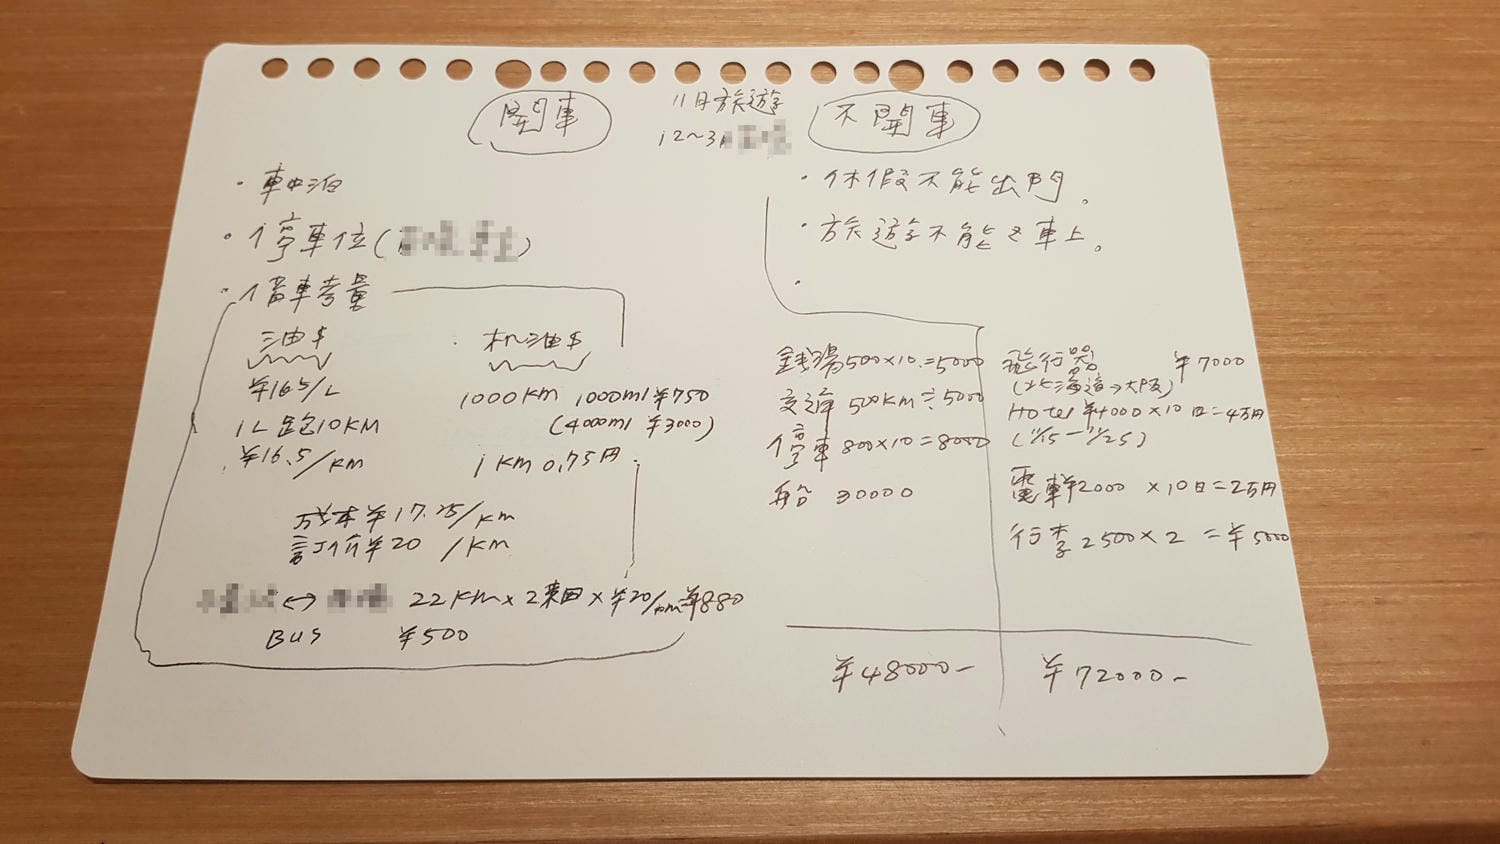 11月旅遊
12~3月
開車
・車中泊
・停車位(
・借車考量
油車
¥165/L
1L跑10KM
¥16.5/KM
机油車
1000KM 1000ml ¥750
(4000ml ¥3000)
1KM 0.75円
成本¥17.25/KM
訂价¥20/KM
↔ 22KM×2來回×¥20/KM=¥880
BUS ¥500
不開車
・休假不能出門。
・旅遊不能之車上。
・
銭湯500×10=5000
交通500KM≒5000
停車800×10=8000
船 30000
¥48000-
飛行器 ¥7000
(北海道→大阪)
Hotel ¥4000×10日=4万円
(11/15-11/25)
電車¥2000×10日=2万円
行李2500×2=¥5000
¥72000-